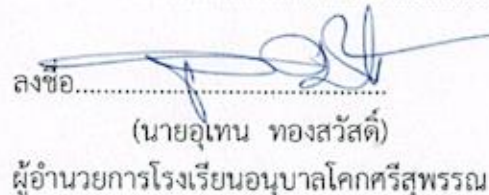 ลงชื่อ........................................
(นายอุเทน ทองสวัสดิ์)
ผู้อำนวยการโรงเรียนอนุบาลโคกศรีสุพรรณ